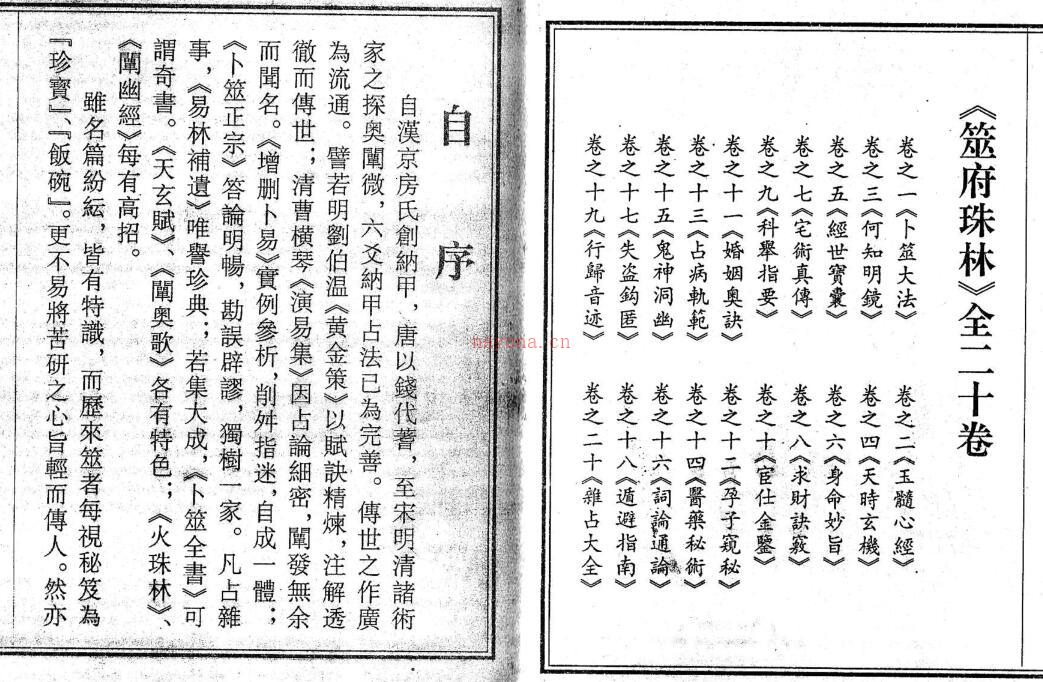 《筮府珠林》全二十卷
卷之一《卜筮大法》
卷之二《玉髓心經》
卷之三《何知明鏡》
卷之四《天時玄機》
卷之五《經世寶囊》
卷之六《身命妙旨》
卷之七《宅術真傳》
卷之八《求財訣竅》
卷之九《科舉指要》
卷之十《宦仕金鑒》
卷之十一《婚姻奥訣》
卷之十二《孕子窺秘》
卷之十三《占病軌範》
卷之十四《醫藥秘術》
卷之十五《鬼神洞幽》
卷之十六《詞論通論》
卷之十七《失盗鈎匿》
卷之十八《遁避指南》
卷之十九《行歸音迹》
卷之二十《雜占大全》
自序
自漢京房氏創納甲，唐以錢代蓍，至宋明清諸術
家之探奥闡微，六爻納甲占法已為完善。傳世之作廣
為流通。譬若明劉伯温《黄金策》以賦訣精煉，注解透
徹而傳世；清曹横琴《演易集》因占論細密，闡發無余
而聞名。《增删卜易》實例參析，削舛指迷，自成一體；
《卜筮正宗》答論明暢，勘誤辟謬，獨樹一家。凡占雜
事，《易林補遺》唯譽珍典；若集大成，《卜筮全書》可
謂奇書。《天玄賦》、《闡奥歌》各有特色；《火珠林》、
《闡幽經》每有高招。
雖名篇紛紜，皆有特識，而歷來筮者每視秘笈為
『珍寳』、『飯碗』。更不易將苦研之心旨輕而傳人。然亦
nazona.cn